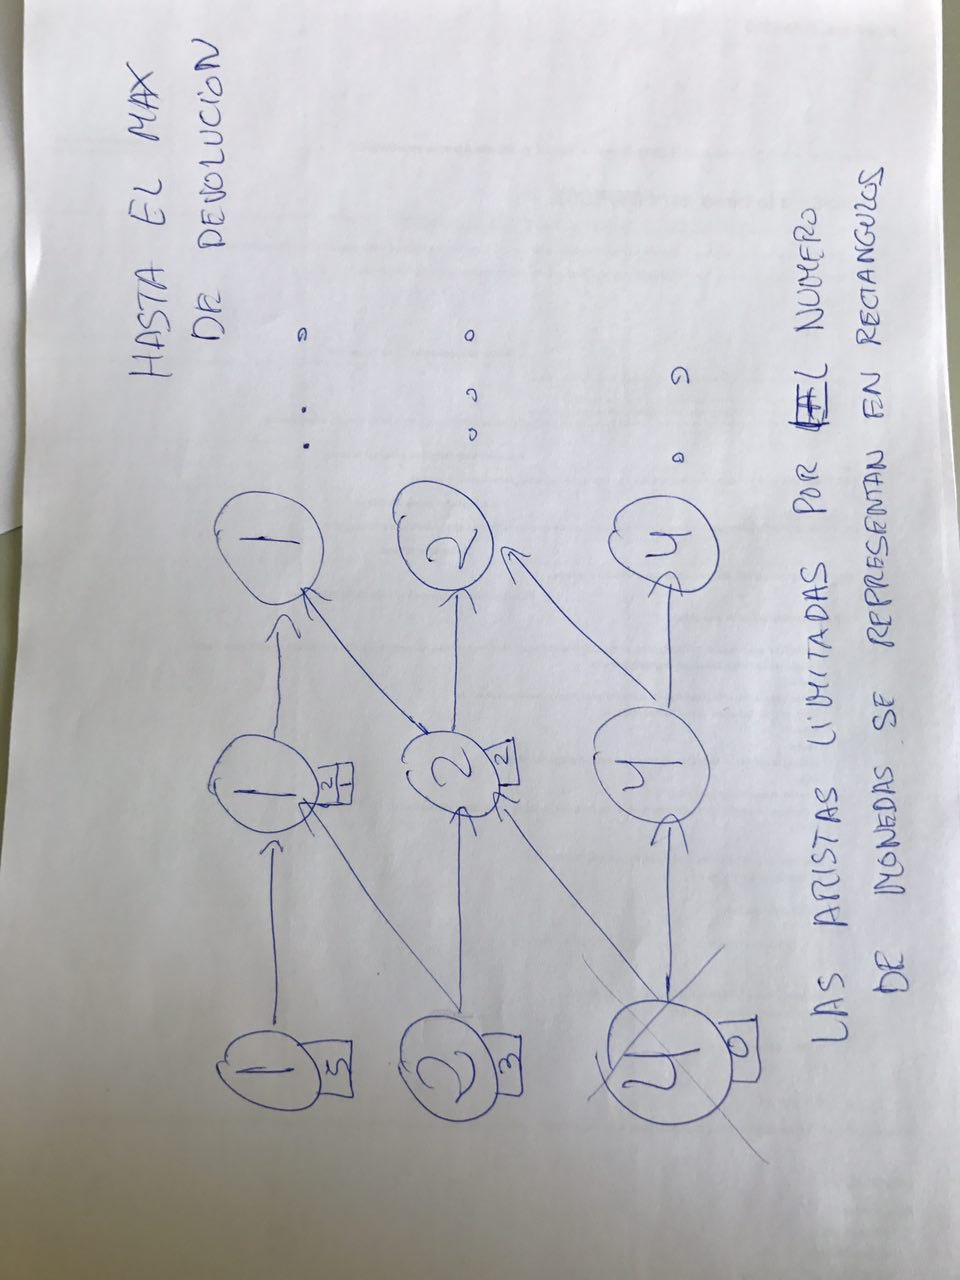 HASTA EL MAX
DE DEVOLUCIÓN
1 1 1
5
2 2 2
3 2
4 4 4
0
LAS ARISTAS LIMITADAS POR EL NUMERO
DE MONEDAS SE REPRESENTAN EN RECTANGULOS